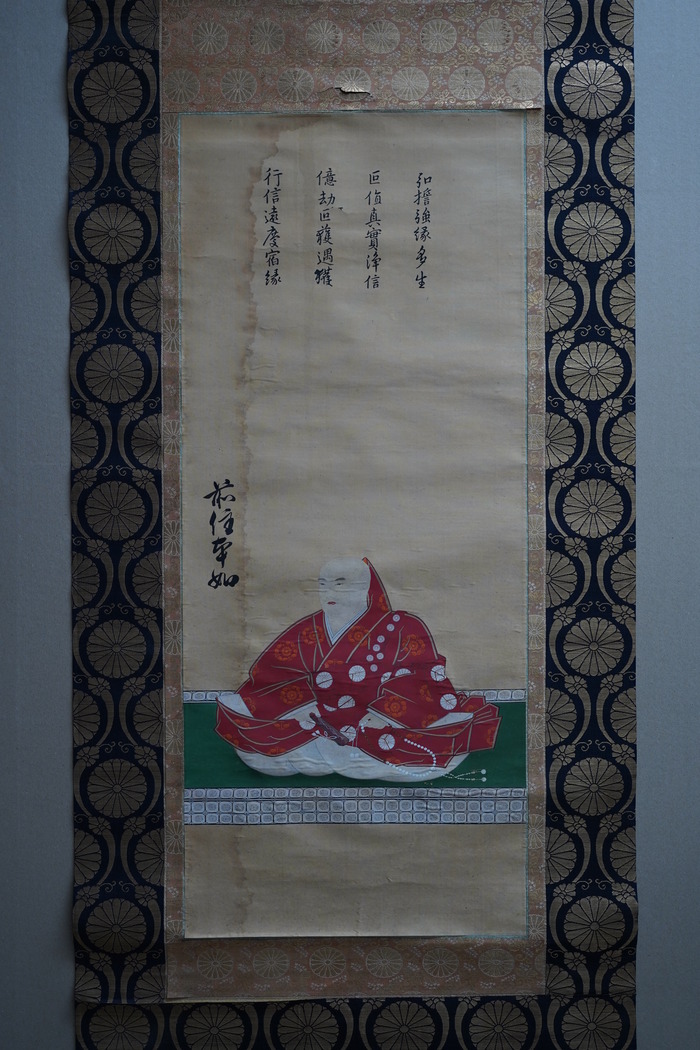 弘誓強縁多生
叵值真實淨信
億劫叵獲遇獲
行信遠慶宿縁
前住本如